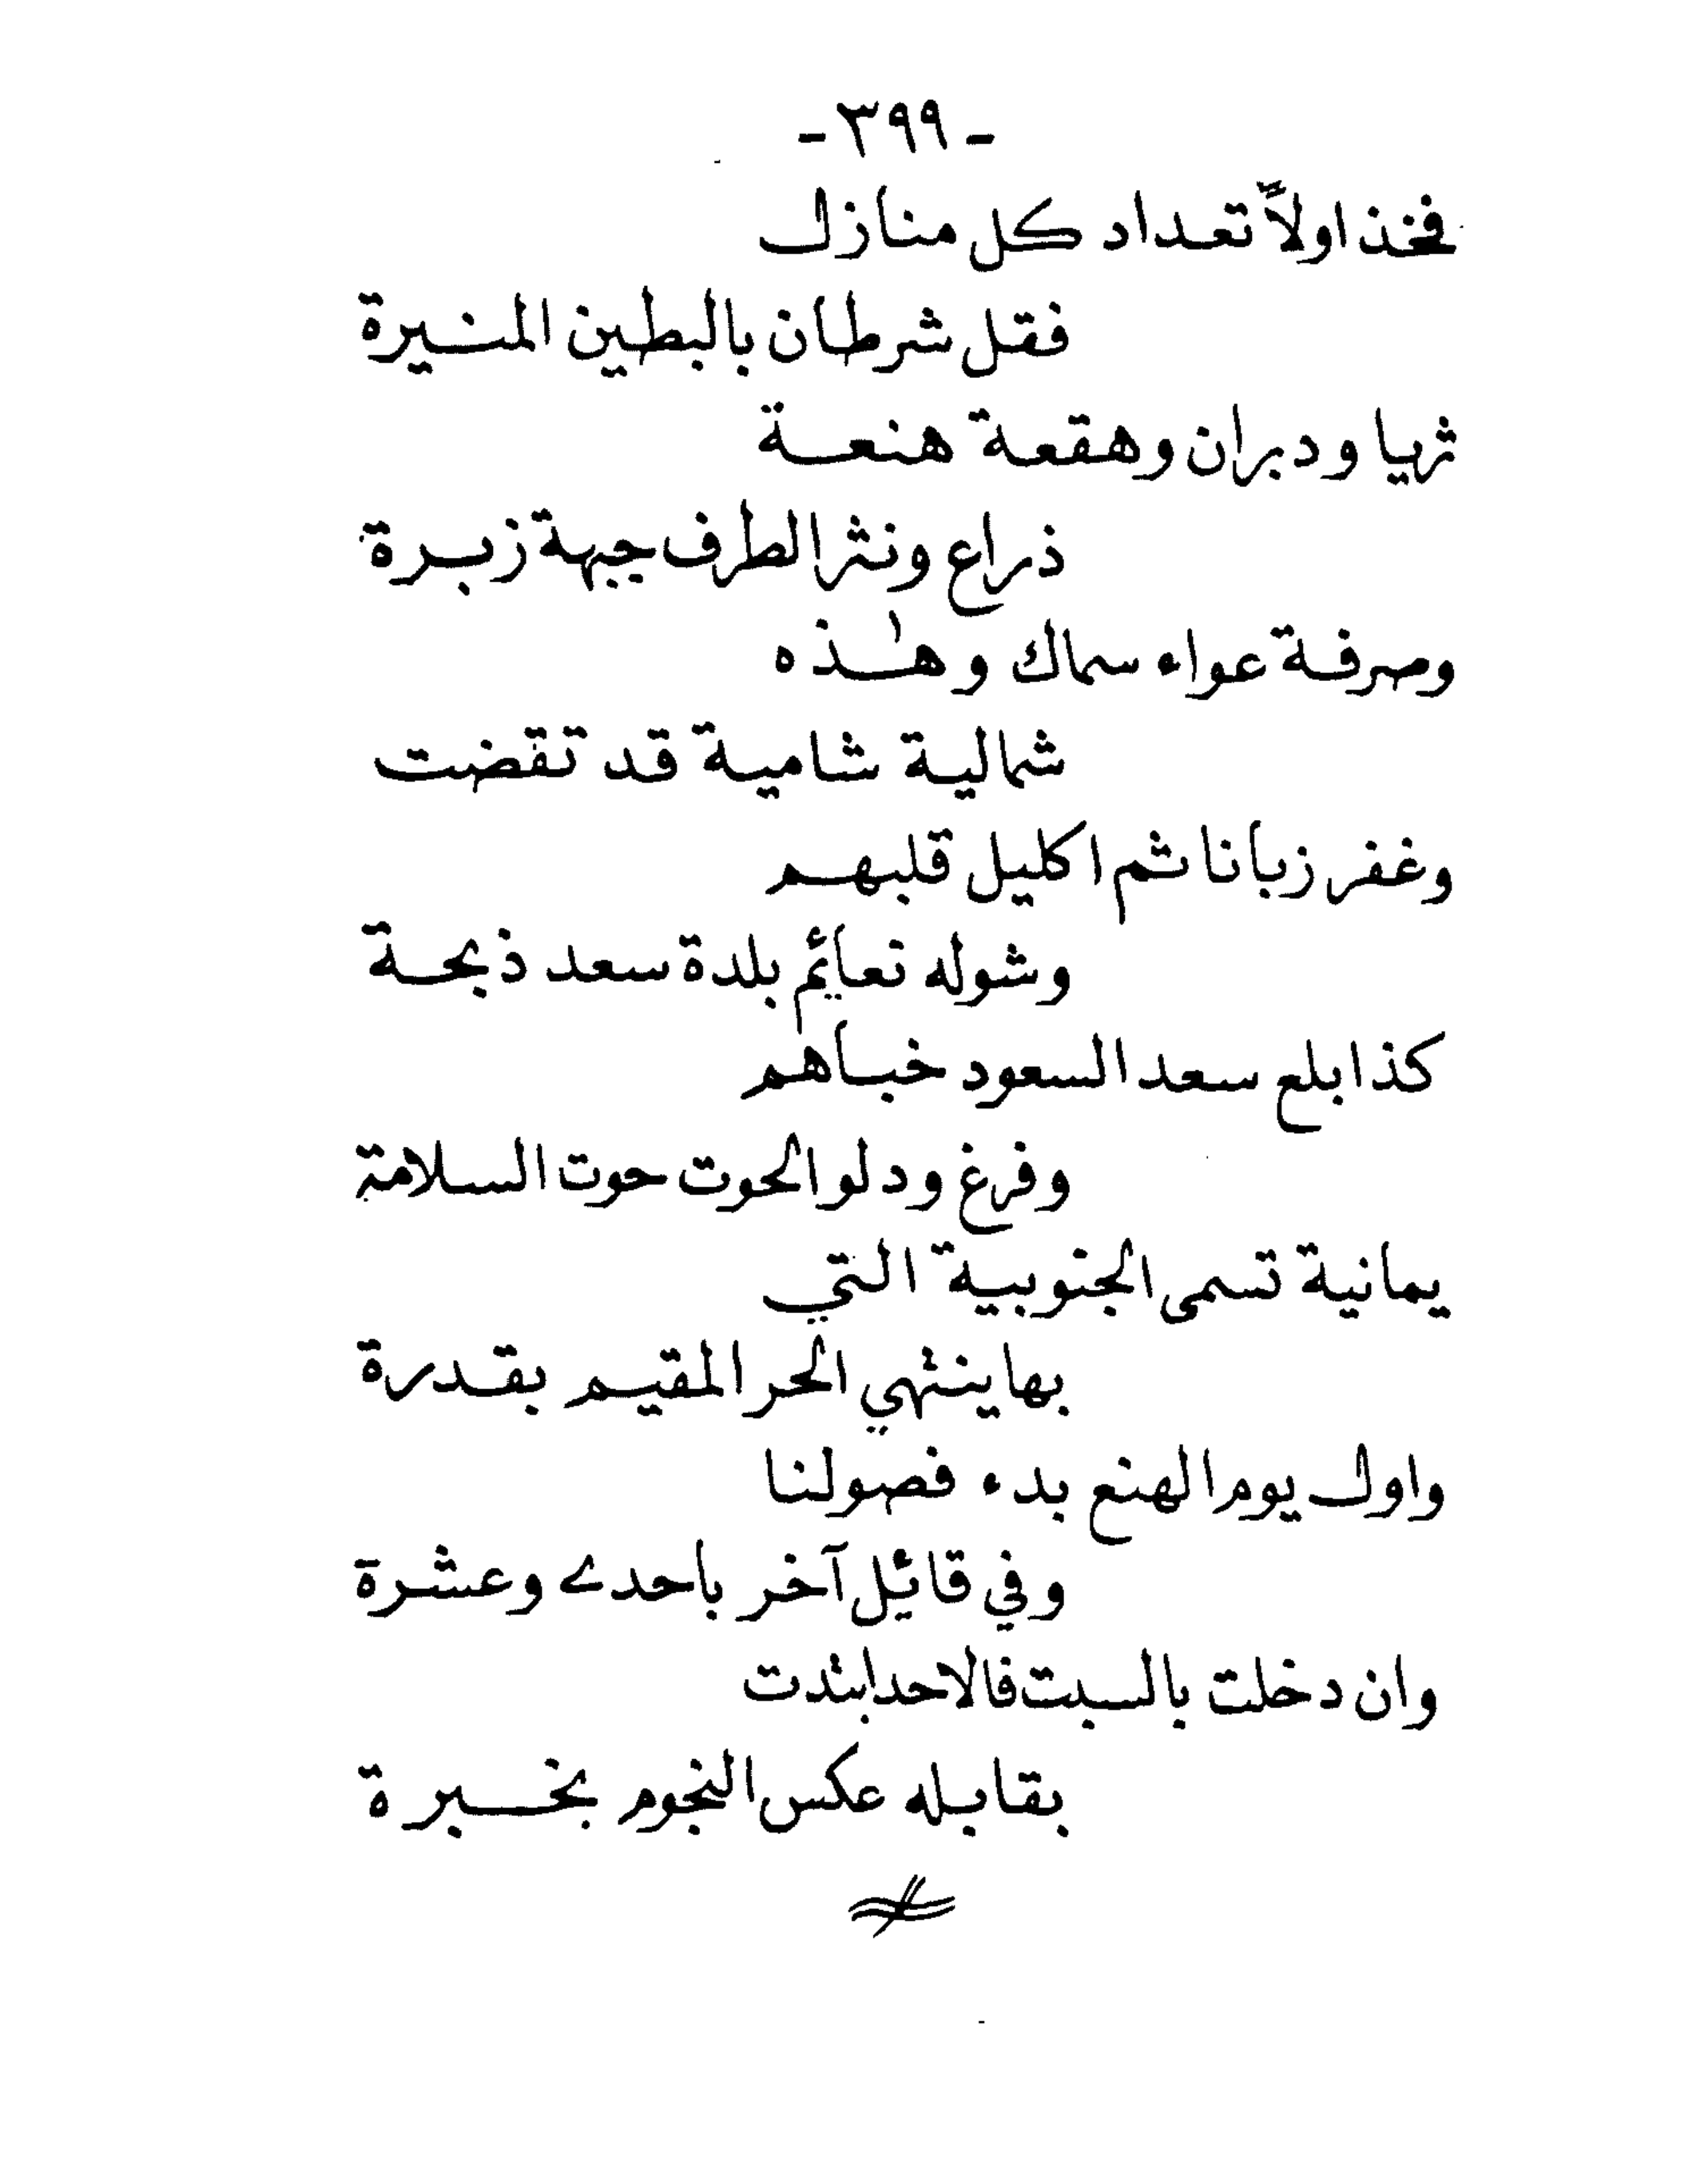 - ٣٩٩ -
فخذ اولاً تعداد كل منازل
فقل شرطان بالبطين المنيرة
ثريا ودبران وهقعة هنعة
ذراع ونثر الطرف جبهة زبرة
وصرفة عواء سماك وهٰذه
شمالية شامية قد تقضت
وغفر زبانا ثم اكليل قلبهم
وشوله نعائم بلدة سعد ذبحة
كذا بلع سعد السعود خباهم
وفرغ ودلو الحوت حوت السلامة
يمانية تسمى الجنوبية التي
بها ينتهي الحر المقيم بقدرة
واول يوم الهنع بدء فصولنا
وفي قائل آخر باحدى وعشرة
وان دخلت بالسبت فالاحد ابتدت
بقابله عكس النجوم بخبرة